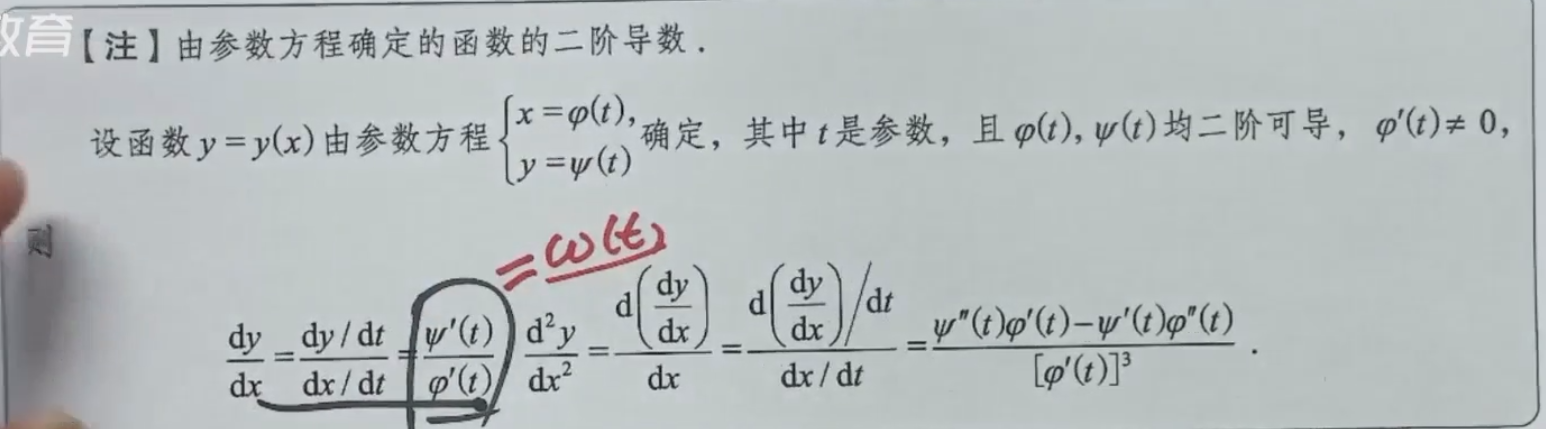 教育
【注】由参数方程确定的函数的二阶导数.
设函数 y = y(x) 由参数方程 { x = φ(t), y = ψ(t) 确定，其中 t 是参数，且 φ(t), ψ(t) 均二阶可导， φ′(t) ≠ 0，
则
= ω(t)
dy/dx = (dy/dt)/(dx/dt) = ψ′(t)/φ′(t) d²y/dx² = d(dy/dx)/dx = (d(dy/dx)/dt)/(dx/dt) = (ψ″(t)φ′(t)−ψ′(t)φ″(t))/[φ′(t)]³ .